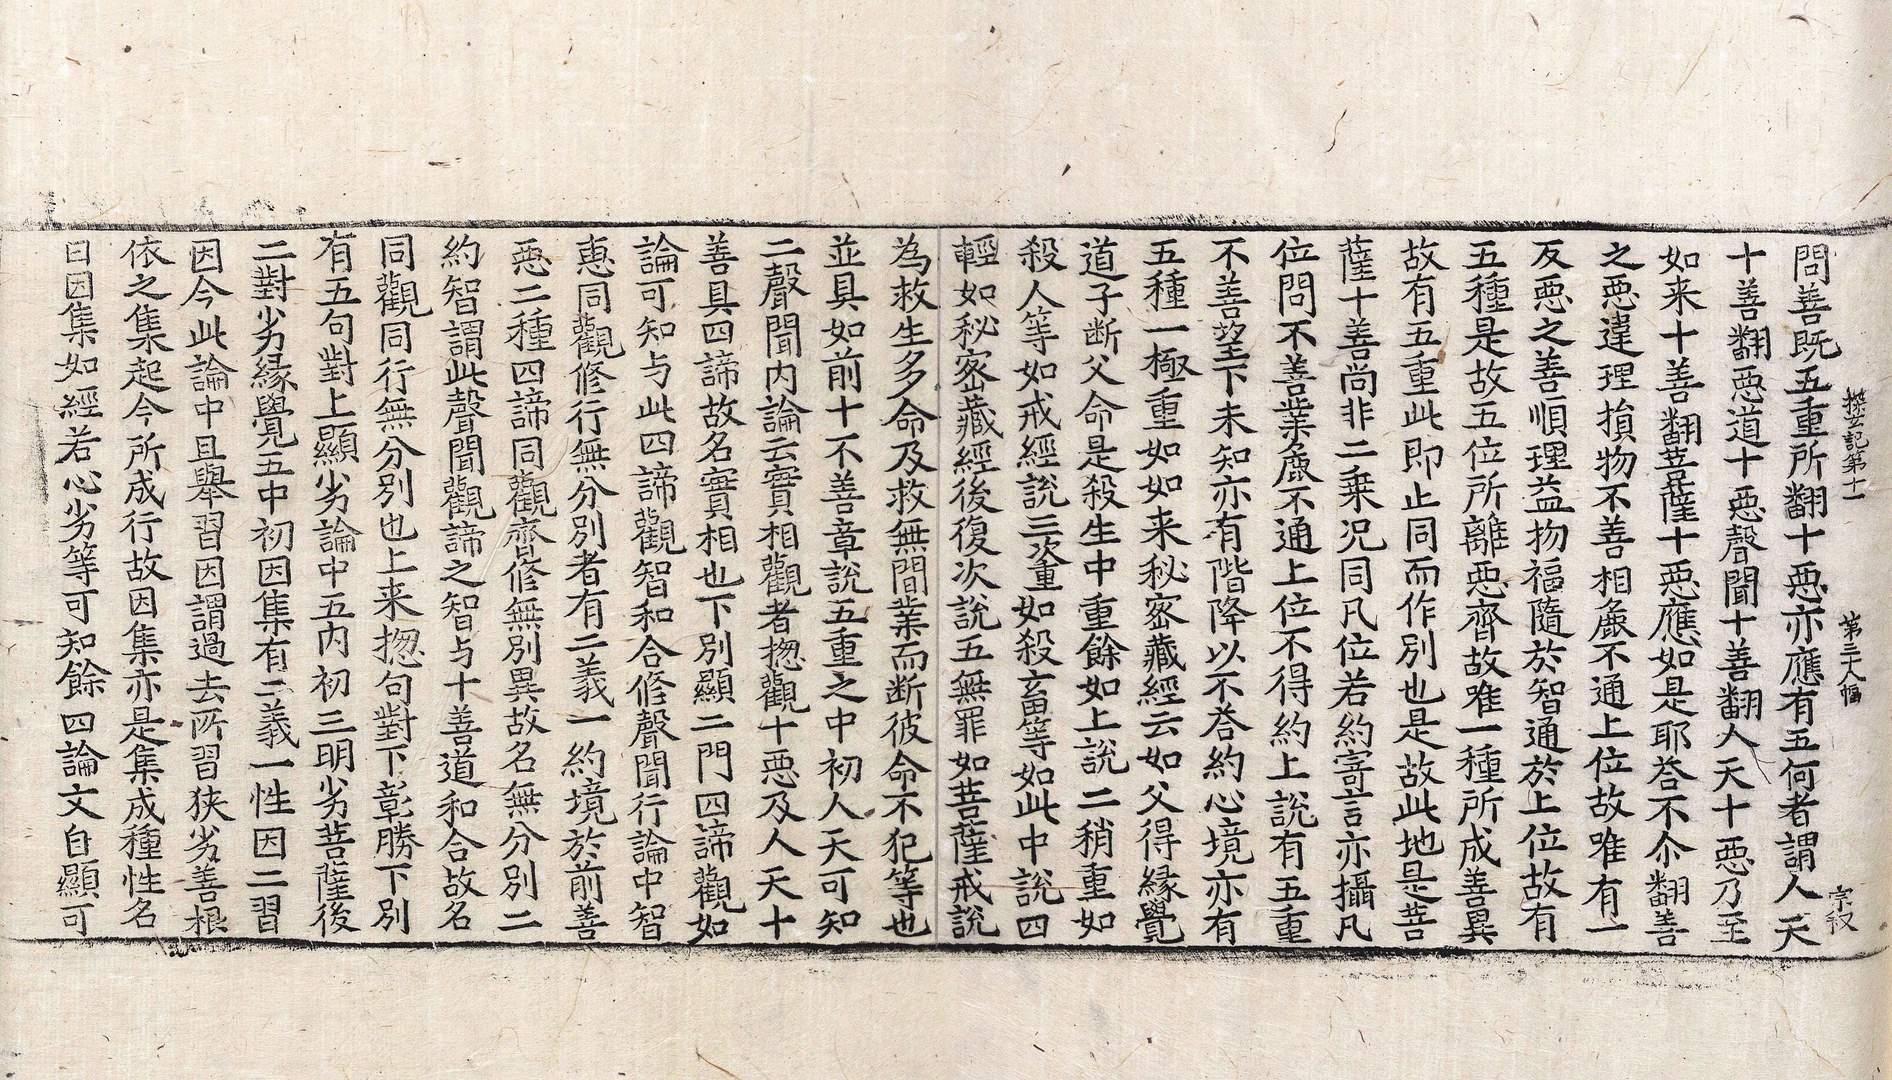 搜玄記第十一 第三大幅 宗叙
問善既五重所翻十惡亦應有五何者謂人天
十善翻惡道十惡聲聞十善翻人天十惡乃至
如来十善翻菩薩十惡應如是耶荅不尒翻善
之惡違理損物不善相麁不通上位故唯有一
反惡之善順理益物福隨於智通於上位故有
五種是故五位所離惡齊故唯一種所成善異
故有五重此即止同而作別也是故此地是菩
薩十善尚非二乗況同凡位若約寄言亦攝凡
位問不善業麁不通上位不得約上說有五重
不善望下未知亦有階降以不荅約心境亦有
五種一極重如如来秘密藏經云如父得縁覺
道子断父命是殺生中重餘如上說二稍重如
殺人等如戒經說三次重如殺畜等如此中說四
輕如秘密藏經後復次說五無罪如菩薩戒說
為救生多命及救無間業而断彼命不犯等也
並具如前十不善章說五重之中初人天可知
二聲聞内論云實相觀者揔觀十惡及人天十
善具四諦故名實相也下別顯二門四諦觀如
論可知与此四諦觀智和合修聲聞行論中智
恵同觀修行無分別者有二義一約境於前善
惡二種四諦同觀齊修無別異故名無分別二
約智謂此聲聞觀諦之智与十善道和合故名
同觀同行無分別也上来揔句對下彰勝下別
有五句對上顯劣論中五内初三明劣菩薩後
二對劣縁覺五中初因集有二義一性因二習
因今此論中且舉習因謂過去所習狭劣善根
依之集起今所成行故因集亦是集成種性名
曰因集如經若心劣等可知餘四論文自顯可